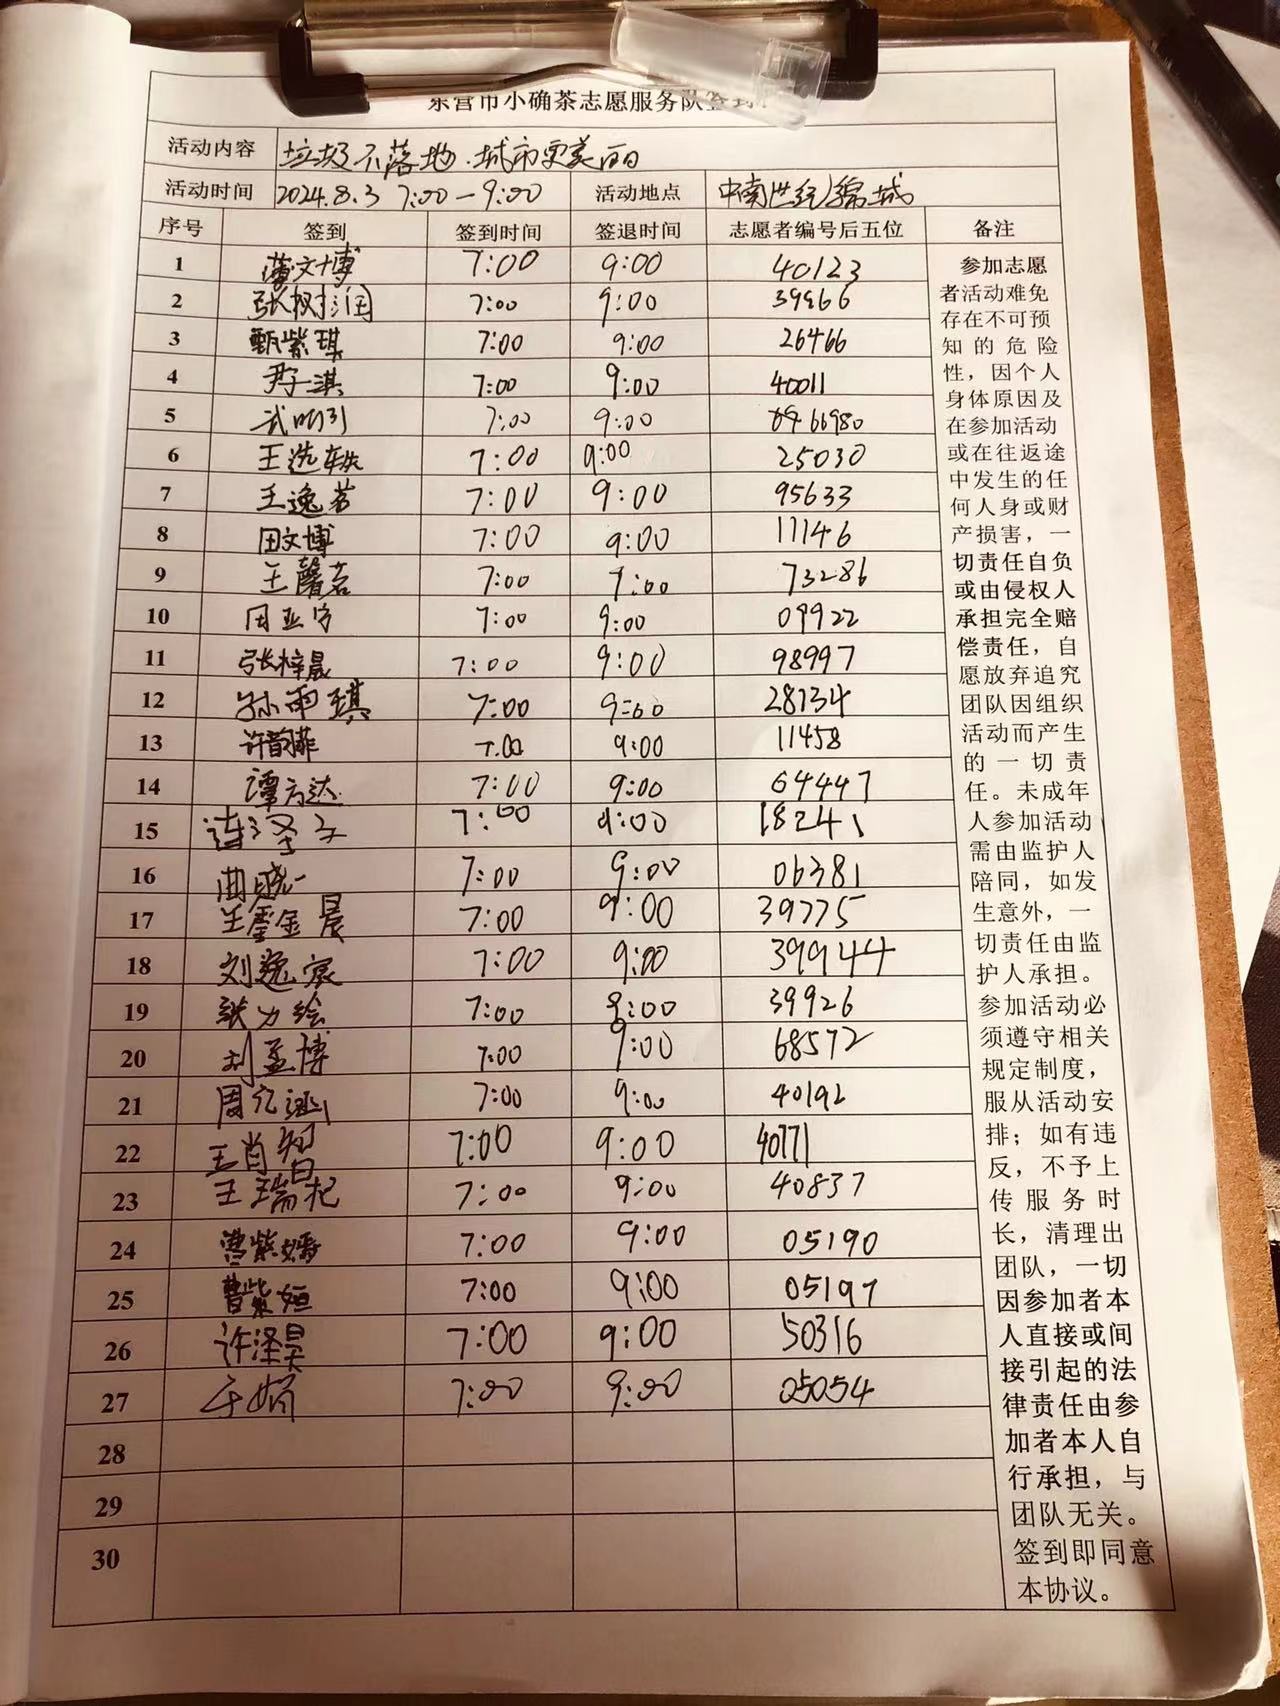 东营市小确茶志愿服务队签到
活动内容 垃圾不落地.城市更美丽
活动时间 2024.8.3 7:00—9:00 活动地点 中南世纪锦城
序号 签到 签到时间 签退时间 志愿者编号后五位 备注
1 薄文博 7:00 9:00 40123
2 张树润 7:00 9:00 39866
3 甄紫琪 7:00 9:00 26466
4 尹子淇 7:00 9:00 40011
5 7:00 9:00 66980
6 王选轶 7:00 9:00 25030
7 王逸茗 7:00 9:00 95633
8 田文博 7:00 9:00 11146
9 王馨茗 7:00 9:00 73286
10 7:00 9:00 09922
11 张梓晨 7:00 9:00 98997
12 孙雨琪 7:00 9:00 28134
13 许韵菲 7.00 9:00 11458
14 谭方达 7:00 9:00 64447
15 7:00 9:00 18241
16 曲晓一 7:00 9:00 06381
17 王鎏金晨 7:00 9:00 39775
18 刘逸宸 7:00 9:00 39944
19 张力绘 7:00 9:00 39926
20 刘孟博 7:00 9:00 68572
21 周亿涵 7:00 9:00 40192
22 王肖智 7:00 9:00 40171
23 王瑞杞 7:00 9:00 40837
24 曹紫嫣 7:00 9:00 05190
25 曹紫姮 7:00 9:00 05197
26 许泽昊 7:00 9:00 50316
27 于娟 7:00 9:00 05054
28
29
30
参加志愿
者活动难免
存在不可预
知的危险
性，因个人
身体原因及
在参加活动
或在往返途
中发生的任
何人身或财
产损害，一
切责任自负
或由侵权人
承担完全赔
偿责任，自
愿放弃追究
团队因组织
活动而产生
的一切责
任。未成年
人参加活动
需由监护人
陪同，如发
生意外，一
切责任由监
护人承担。
参加活动必
须遵守相关
规定制度，
服从活动安
排；如有违
反，不予上
传服务时
长，清理出
团队，一切
因参加者本
人直接或间
接引起的法
律责任由参
加者本人自
行承担，与
团队无关。
签到即同意
本协议。